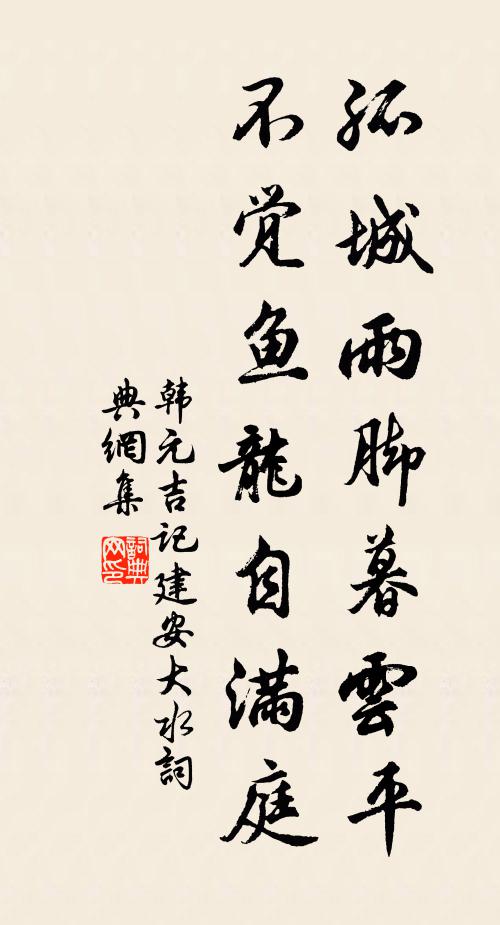 孤城雨脚暮雲平
不觉鱼龍自满庭
韩元吉记建安大水词
典網集
詞典网印